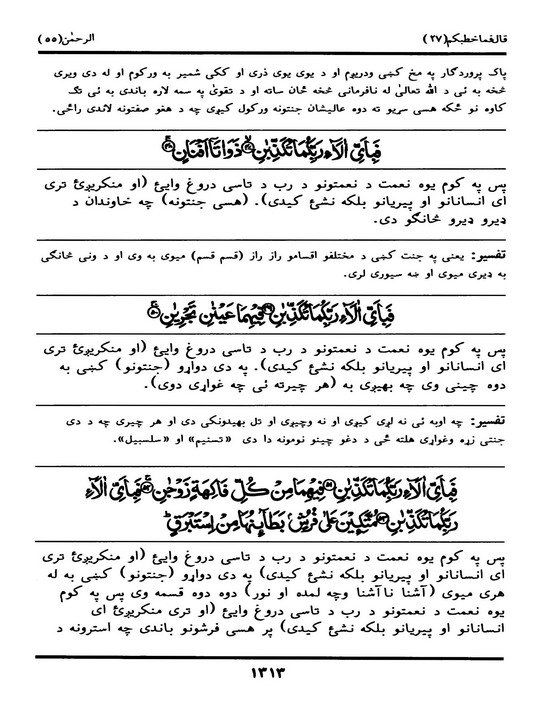 قال فما خطبکم (۲۷)
الرحمٰن (۵۵)
پاک پروردگار په مخ کښی ودریږم او د یوی یوی ذری او ککی شمیر به ورکوم او له دی ویری
څخه به ئی د الله تعالیٰ له نافرمانی څخه ځان ساته او د تقویٰ په سمه لاره باندی به ئی تګ
کاوه نو ځکه هسی سړیو ته دوه عالیشان جنتونه ورکول کیږی چه د هغو صفتونه لاندی راځی.
فَبِأَيِّ اٰلَآءِ رَبِّكُمَا تُكَذِّبٰنِ ۝۴۷ ذَوَاتَآ اَفْنَانٍ ۝۴۸
پس په کوم یوه نعمت د نعمتونو د رب د تاسی دروغ وایئ (او منکریږئ تری
ای انسانانو او پیریانو بلکه نشئ کیدی). (هسی جنتونه) چه خاوندان د
ډیرو ډیرو ځانګو دی.
تفسیر: یعنی په جنت کښی د مختلفو اقسامو راز راز (قسم قسم) میوی به وی او د ونی ځانګی
به ډیری میوی او ښه سیوری لری.
فَبِأَيِّ اٰلَآءِ رَبِّكُمَا تُكَذِّبٰنِ ۝۴۹ فِيْهِمَا عَيْنٰنِ تَجْرِيٰنِ ۝۵۰
پس په کوم یوه نعمت د نعمتونو د رب د تاسی دروغ وایئ (او منکریږئ تری
ای انسانانو او پیریانو بلکه نشئ کیدی). په دی دواړو (جنتونو) کښی به
دوه چینی وی چه بهیږی به (هر چیرته ئی چه غواړی دوی).
تفسیر: چه اوبه ئی نه لږی کیږی او نه وچیږی او تل بهیدونکی دی او هر چیری چه د دی
جنتی زړه وغواړی هلته ځی د دغو چینو نومونه دا دی «تسنیم» او «سلسبیل».
فَبِأَيِّ اٰلَآءِ رَبِّكُمَا تُكَذِّبٰنِ ۝۵۱ فِيْهِمَا مِنْ كُلِّ فَاكِهَةٍ زَوْجٰنِ ۝۵۲ فَبِأَيِّ اٰلَآءِ
رَبِّكُمَا تُكَذِّبٰنِ ۝۵۳ مُتَّكِـِٕيْنَ عَلٰى فُرُشٍۭ بَطَآىِٕنُهَا مِنْ اِسْتَبْرَقٍ
پس په کوم یوه نعمت د نعمتونو د رب د تاسی دروغ وایئ (او منکریږئ تری
ای انسانانو او پیریانو بلکه نشئ کیدی) په دی دواړو (جنتونو) کښی به له
هری میوی (آشنا ناآشنا وچه لمده او نور) دوه دوه قسمه وی پس په کوم
یوه نعمت د نعمتونو د رب د تاسی دروغ وایئ (او تری منکریږئ ای
انسانانو او پیریانو بلکه نشئ کیدی) پر هسی فرشونو باندی چه استرونه د
۱۳۱۳